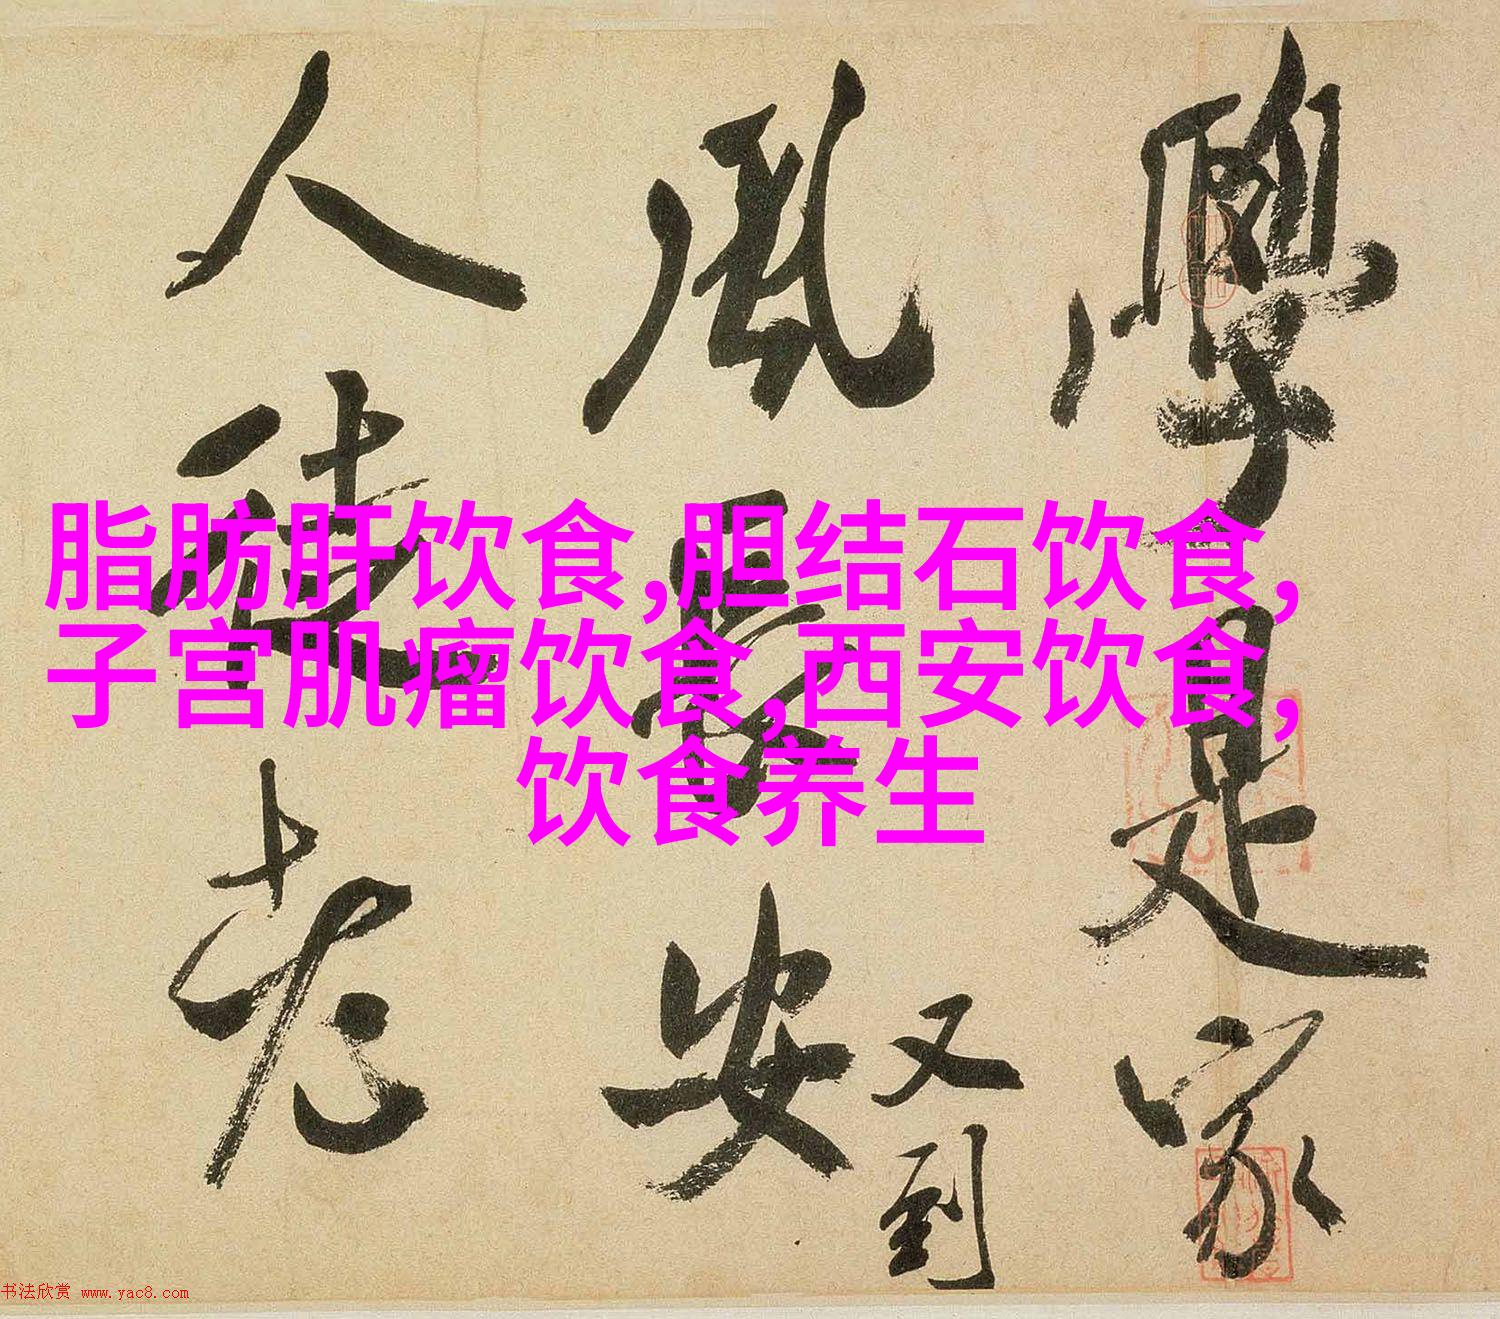 脂肪肝饮食,胆结石饮食,
子宫肌瘤饮食,西安饮食,
饮食养生
學是家
風長安
又到
人徒老
书法欣赏 www.yac8.com